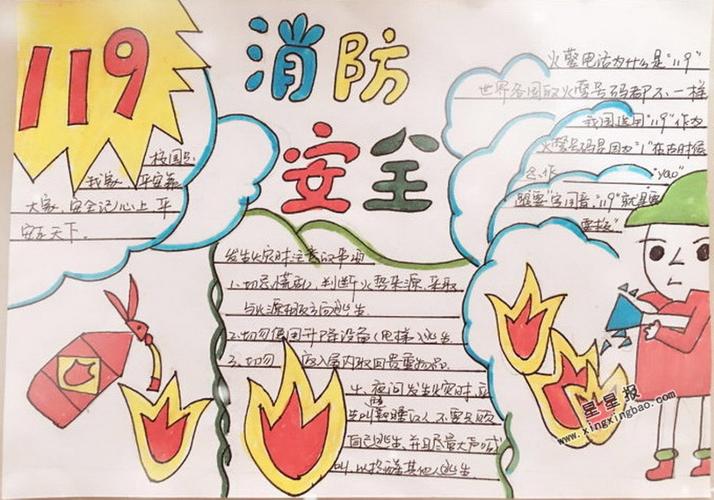 119
消防
安全
校园是
我家 平安靠
大家,安全记心上 平
安在天下.
火警电话为什么是"119"
世界各国取火警号码都不一样
我国选用"119"作为
火警号码是因为"1"在古时候
念作 "yao"
发生火灾时注意的事项
1.切忌慌乱,判断火势来源,采取
与火源相反方向逃生
2.切勿使用升降设备(电梯)逃生
3.切勿 入屋内取回贵重物品.
4.夜间发生火灾时,应
先叫醒熟睡的人,不要只顾
自己逃生,并且尽量大声喊
叫,以提醒其他人逃生
星星报
www.xingxingbao.com